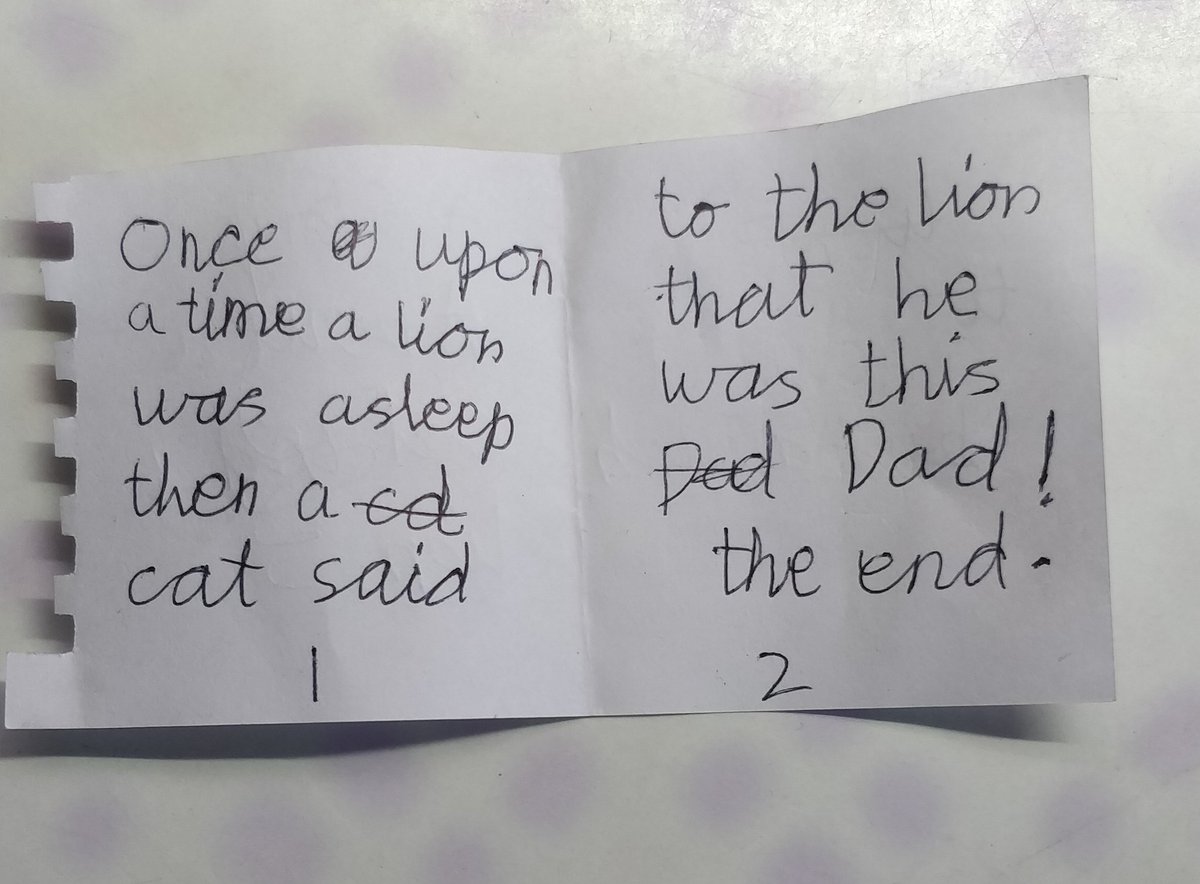 Once upon
a time a lion
was asleep
then a cd
cat said
1
to the lion
that he
was this
Dad Dad!
the end.
2